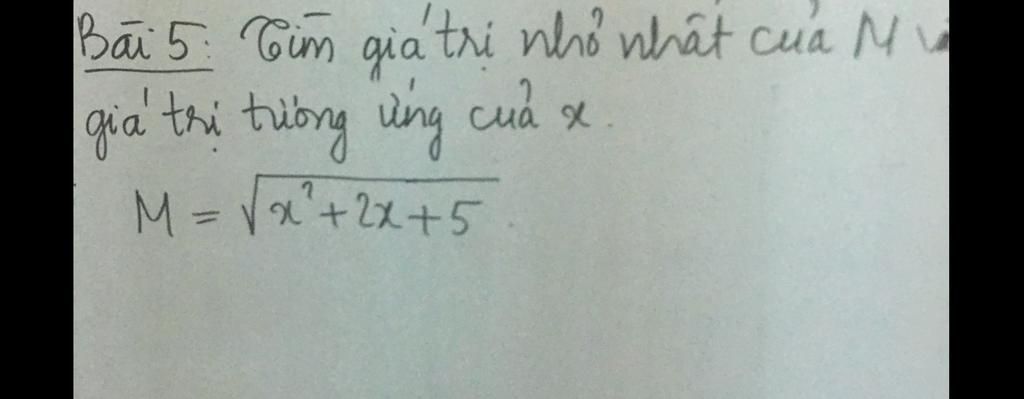 Bài 5: Tìm giá trị nhỏ nhất của M
giá trị tương ứng của x.
M = √x²+2x+5